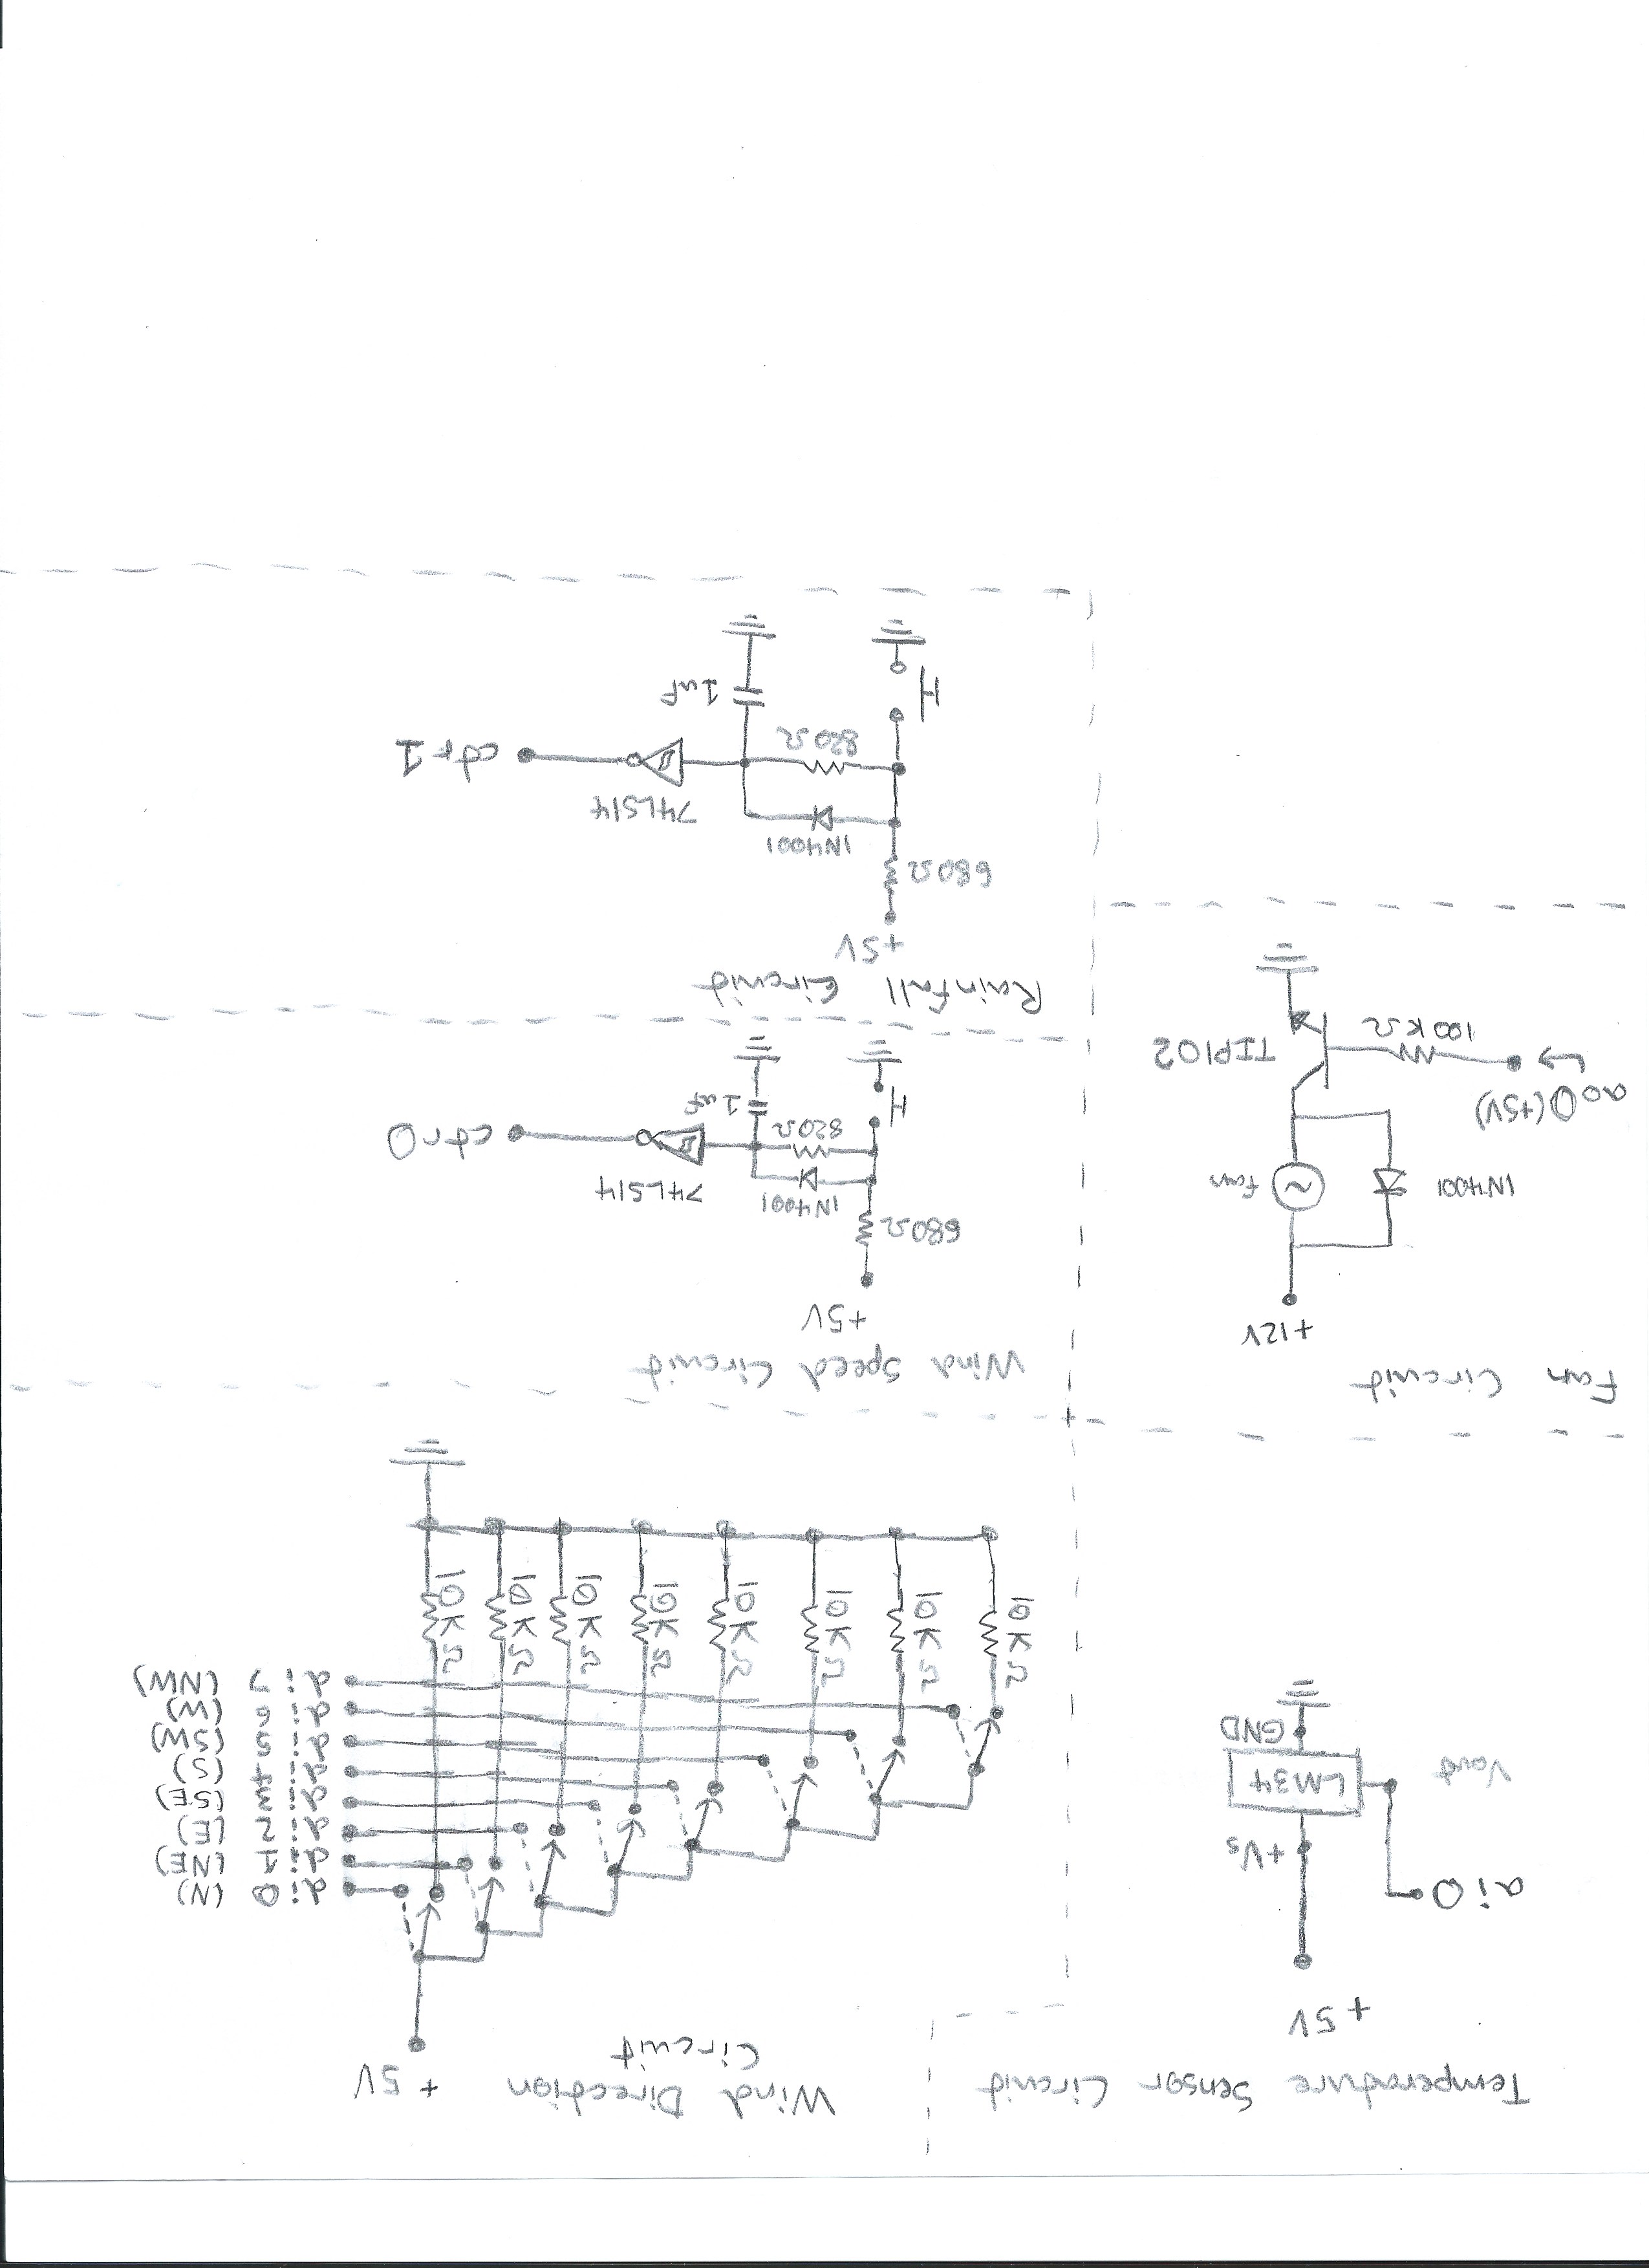 Temperature Sensor Circuit
+5V
ai0
+Vs
Vout
LM34
GND
Wind Direction
Circuit
+ 5V
di0 (N)
di1 (NE)
di2 (E)
di3 (SE)
di4 (S)
di5 (SW)
di6 (W)
di7 (NW)
10KΩ
10KΩ
10KΩ
10KΩ
10KΩ
10KΩ
10KΩ
10KΩ
Fan Circuit
+12V
1N4001
fan
ao0(+5V)
100KΩ
TIP102
Wind Speed Circuit
+5V
680Ω
1N4001
74LS14
820Ω
ctr0
H
1uf
Rainfall Circuit
+5V
680Ω
1N4001
74LS14
820Ω
ctr1
H
1uF